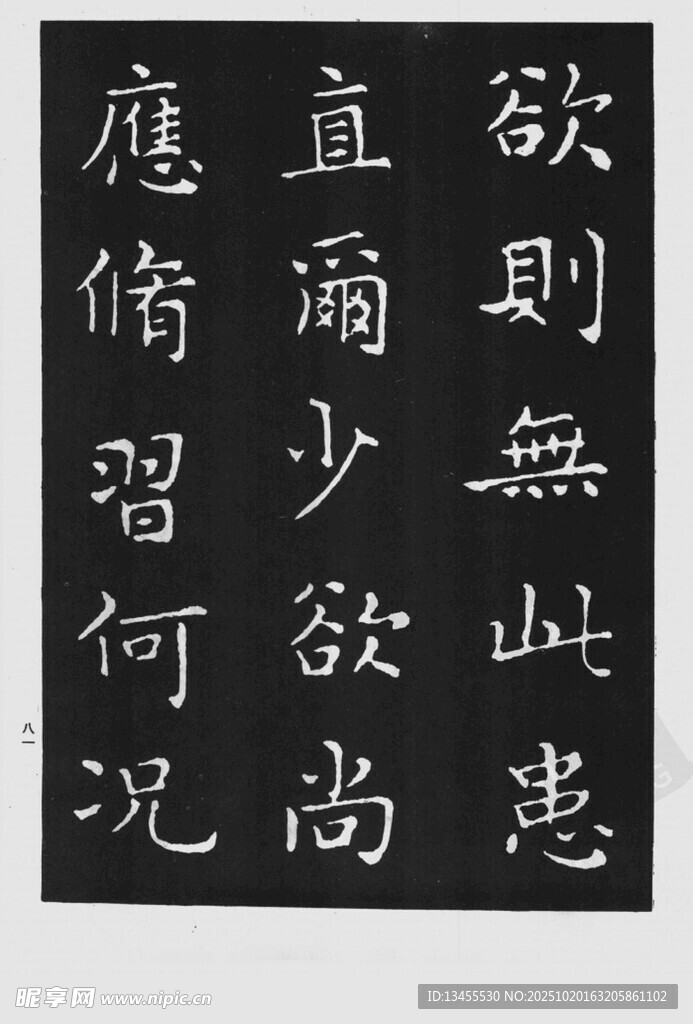 欲則無此患
直爾少欲尚
應脩習何況
八一
昵享网 www.nipic.cn
ID:13455530 NO:20251020163205861102